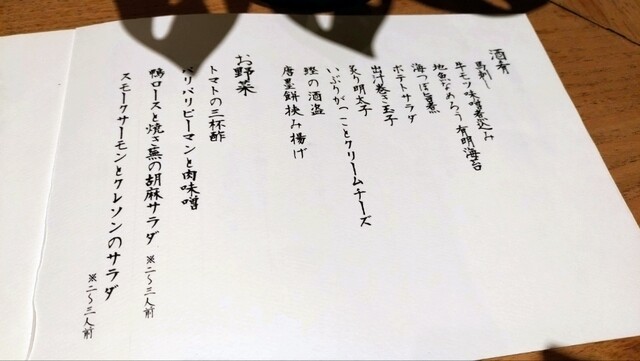 酒肴
馬刺し
牛モツ味噌煮込み
地魚なめろう有明海苔
海つぼ旨煮
ポテトサラダ
出汁巻き玉子
炙り明太子
いぶりがっことクリームチーズ
鰹の酒盗
唐墨餅挟み揚げ
お野菜
トマトの三杯酢
パリパリピーマンと肉味噌
鴨ロースと焼き葱の胡麻サラダ ※二〜三人前
スモークサーモンとクレソンのサラダ ※二〜三人前